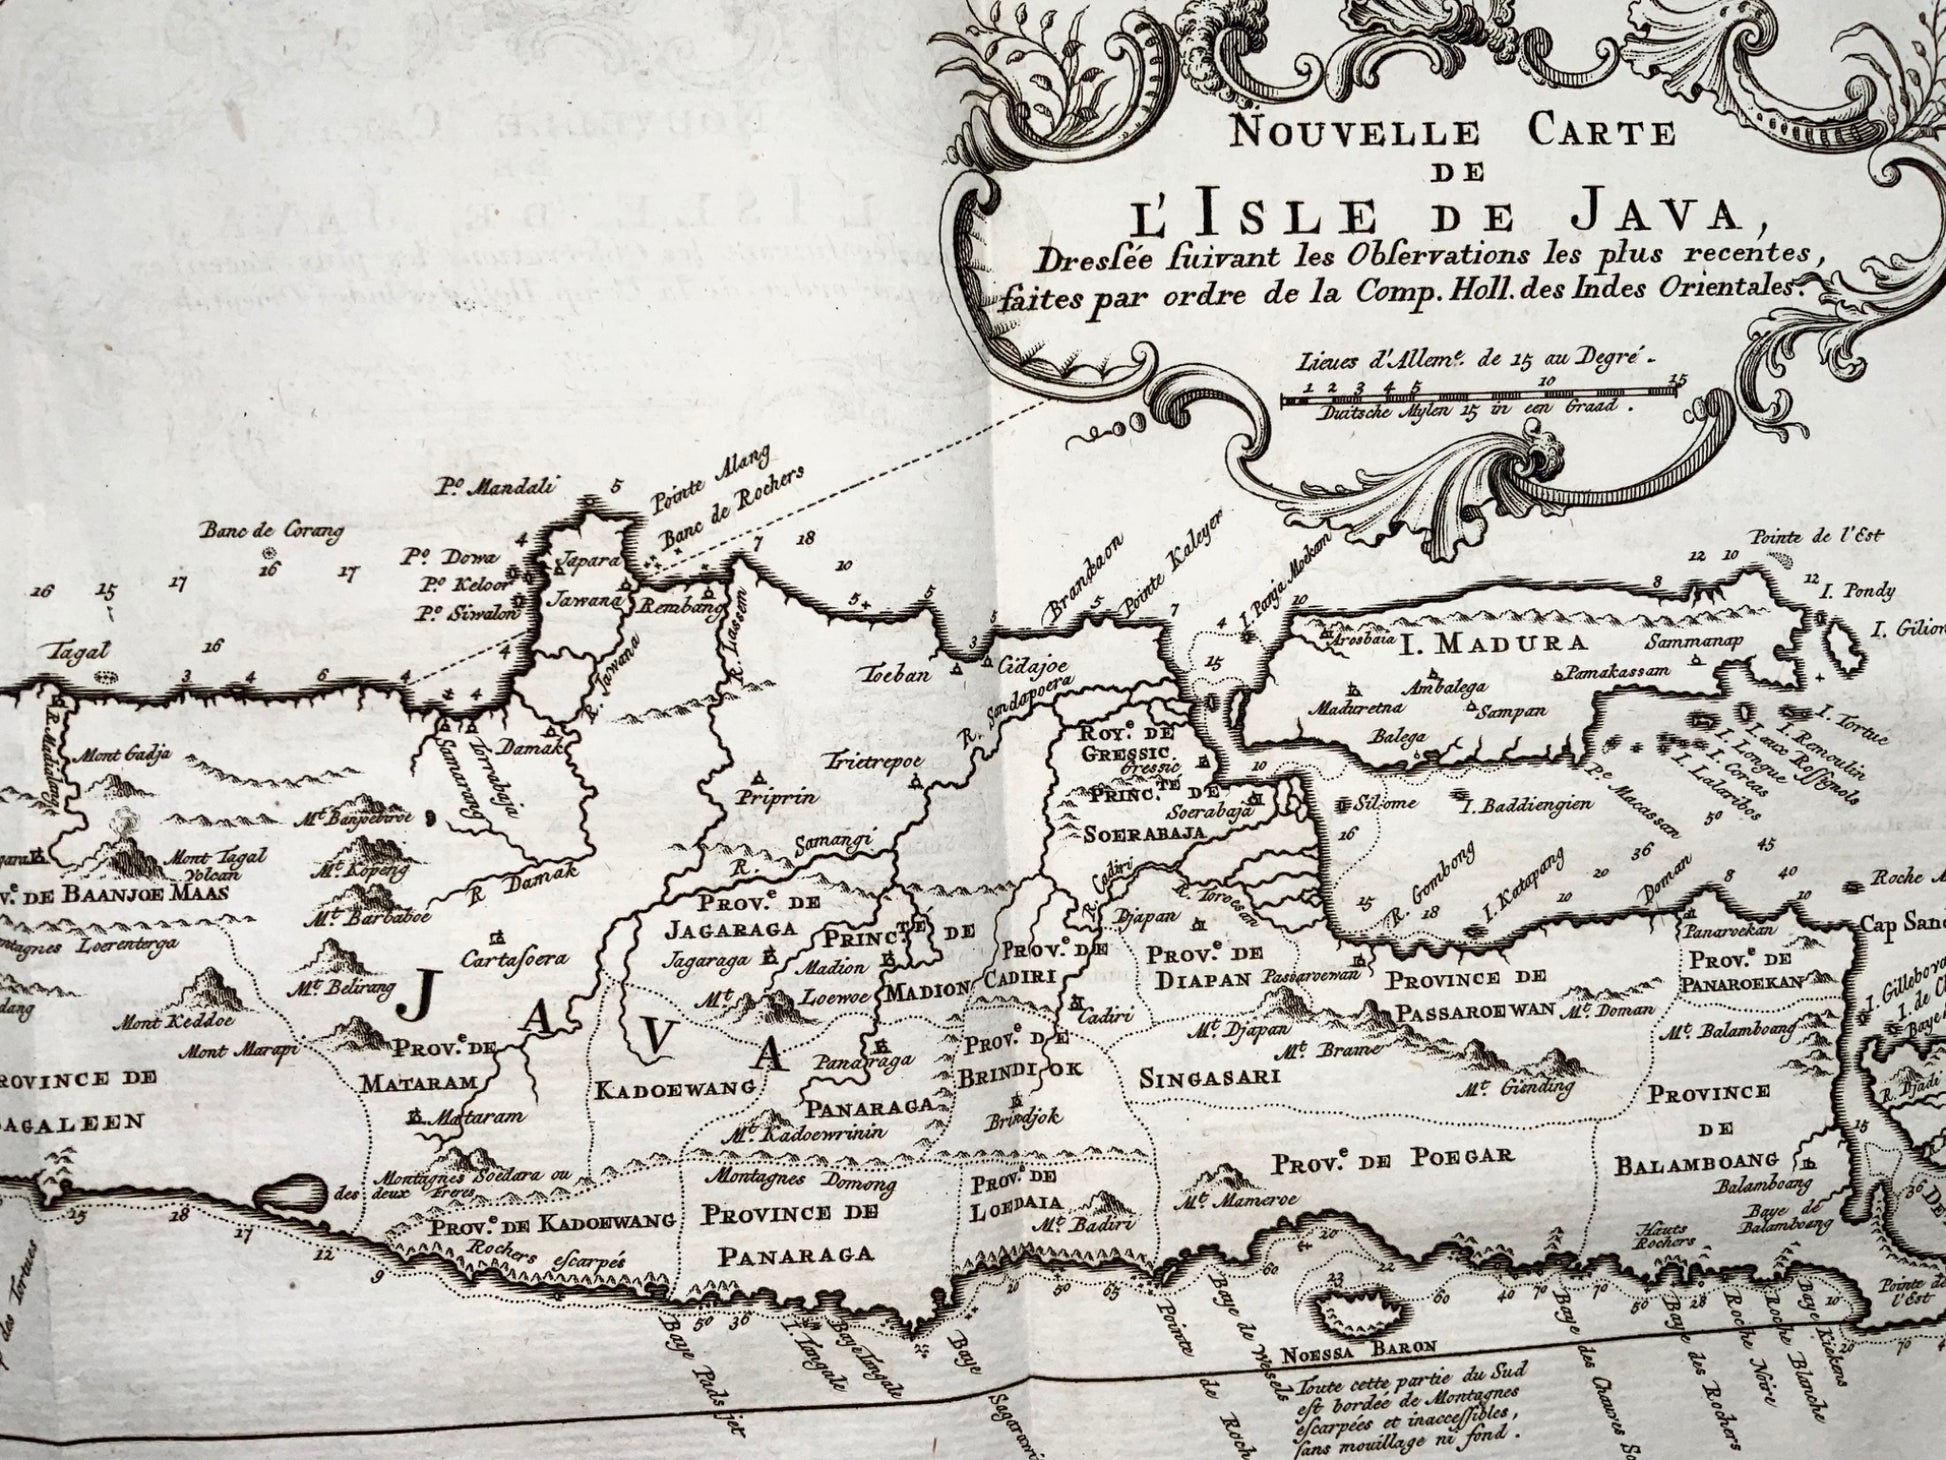 NOUVELLE CARTE
DE
L'ISLE DE JAVA,
Dresſée ſuivant les Obſervations les plus recentes,
faites par ordre de la Comp. Holl. des Indes Orientales.
Lieues d'Allemᵉ. de 15 au Degré.
1 2 3 4 5 10 15
Duitsche Mylen 15 in een Graad.
Pᵒ. Mandali
5
Pointe Alang
Banc de Rochers
Banc de Corang
4
Pᵒ. Dowa
Japara
7
18
10
16
15
17
16
17
Pᵒ. Keloor
Jawana
Rembang
Pᵒ. Siwalon
Tagal
16
3
4
6
4
4
4
R. Jawana
R. Lassem
5
5
5
3
Toeban
Cidajoe
Brankaon
5
Pointe Kaleyer
7
4
15
I. Panja Moekam
10
Pointe de l'Est
12 10
8
12
I. Pondy
Arosbaia
I. MADURA
Sammanap
Pamakassam
Ambalega
Maduretna
Sampan
Balega
I. Tortue
I. Remoulin
I. aux Roſſignols
I. Longue
I. Coreas
I. Lalaribos
De Macassan
R. Sandapoera
Mont Gadja
Samarang
Torrabaja
Damak
Trietrepoe
Priprin
ROYᵉ. DE
GRESSIC
Gressic
PRINC.ᵀᴱ DE
Soerabaja
SOERABAJA
10
Siliome
I. Baddiengien
16
50
Mᵗ. Banjoebiroe
Mont Tagal
Volcan
Mᵗ. Kopeng
Mᵗ. Barbaboe
R. Damak
R. Samangi
R. Cadiri
R. Toroesan
R. Gombong
I. Katapang
Doman
36
45
20
40
8
10
10
15
18
Roche
DE BAANJOE MAAS
Loerenterga
Cartaſoera
PROV.ᵉ DE
JAGARAGA
Jagaraga
PRINC.ᵀᴱ DE
MADION
Madion
PROV.ᵉ DE
CADIRI
Djapan
PROV.ᵉ DE
DIAPAN
Passaroewan
PROVINCE DE
PASSAROEWAN
Panaroekan
PROV.ᵉ DE
PANAROEKAN
Mᵗ. Belirang
Mont Keddoe
Mont Marapi
JAVA
Mᵗ. Loewoe
Cadiri
Mᵗ. Djapan
Mᵗ. Brame
Mᵗ. Doman
Mᵗ. Balamboang
I. Gilleboran
PROVINCE DE
PROV.ᵉ DE
MATARAM
Mataram
KADOEWANG
Panaraga
PANARAGA
PROV.ᵉ DE
BRINDIOK
Brindjok
SINGASARI
Mᵗ. Giending
PROVINCE
DE
BALAMBOANG
Balamboang
R. Djadi
15
Mᵗ. Kadoewrinin
PROV.ᵉ DE POEGAR
Montagnes Soedara ou
des deux Freres
Montagnes Domong
PROV.ᵉ DE
LOEDAIA
Mᵗ. Badiri
Mᵗ. Mameroe
Baye de
Balamboang
Hauts
Rochers
36
PROV.ᵉ DE KADOEWANG
Rochers eſcarpés
PROVINCE DE
PANARAGA
15
18
17
12
9
50 36
20 50 65
60
20
22
23
60 40 70 70 50 28
10
20
70
Pointe de
l'Est
des Tortues
Baye Padsjet
I. Tangale
Baye Tangale
Baye
Pointe de Roch
Baye de Wesels
NOESSA BARON
Baye des Chauves
Baye des Rochers
Roche Noire
Roche Blanche
Baye Kiekens
Toute cette partie du Sud
eſt bordée de Montagnes
eſcarpées et inacceſſibles,
ſans mouillage ni fond.